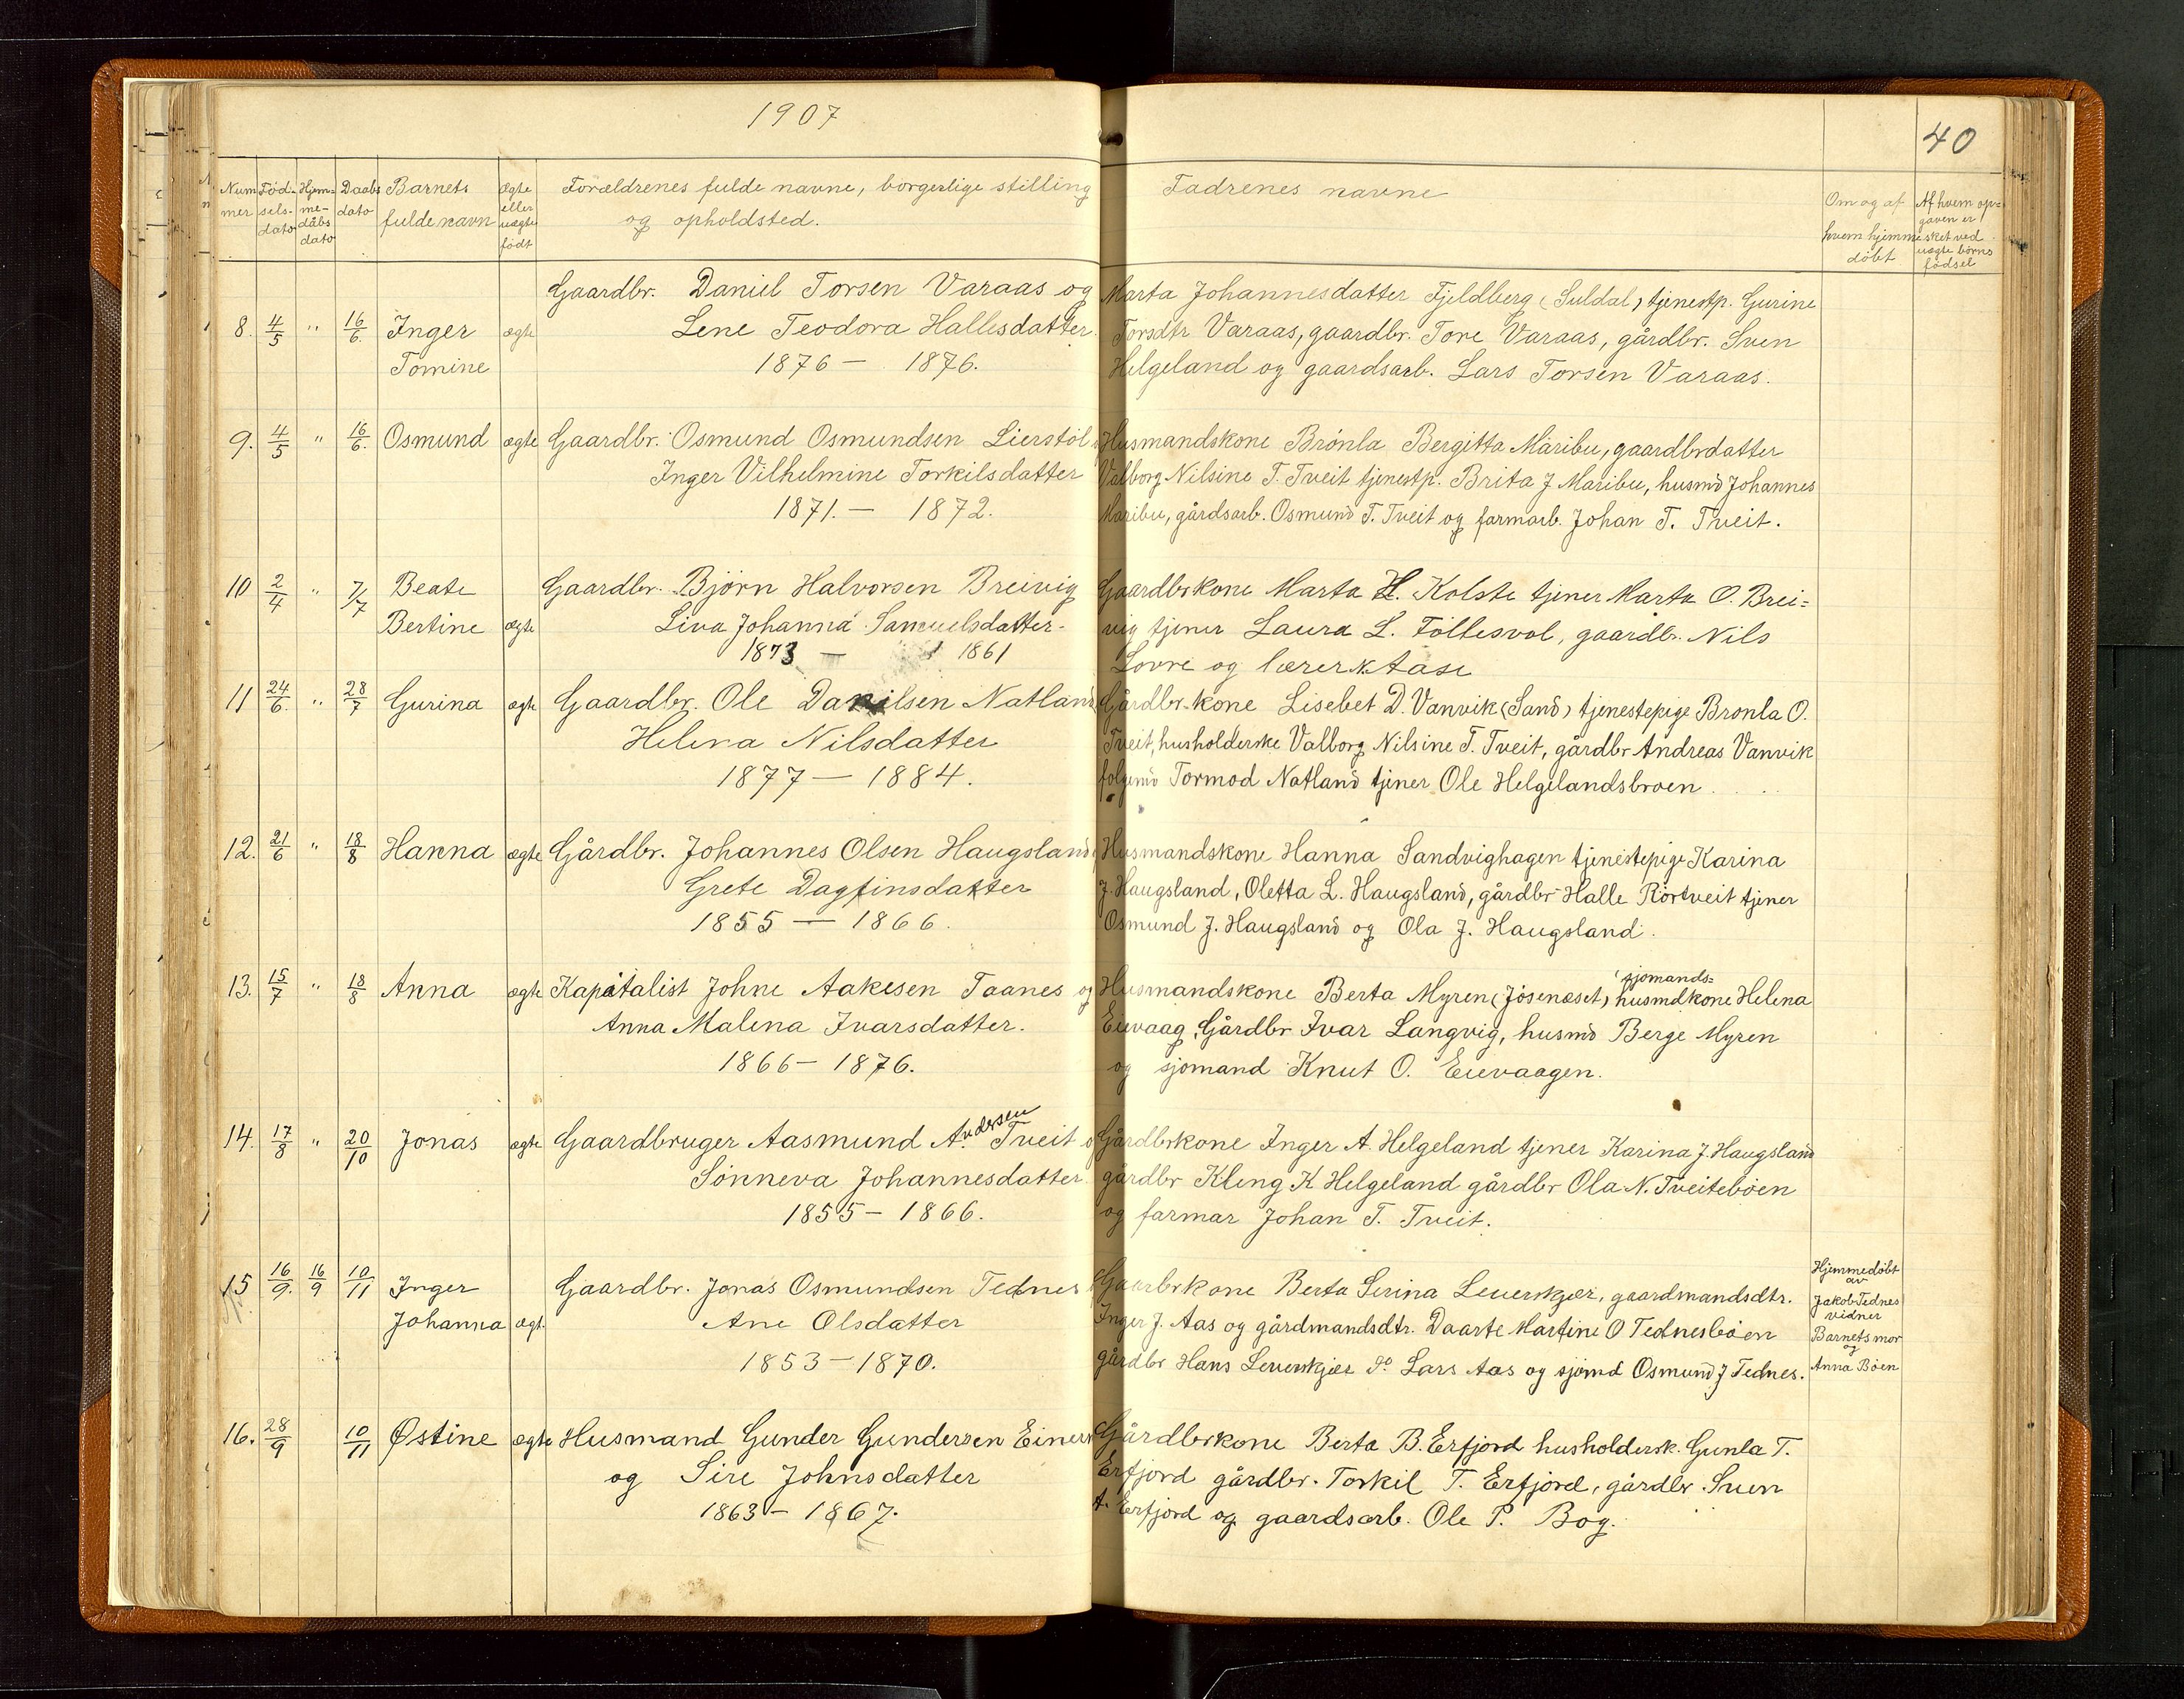 1907
40
Num mer
Fød- sels- dato
Hjem- me- dåbs dato
Daabs dato
Barnets fulde navn
Ægte eller uægte født
Forældrenes fulde navne, borgerlige stilling
og opholdsted.
Fadrenes navne
Om og af hvem hjemme døbt
Af hvem op- gaven er sket ved uægte børns fødsel
Gaardbr. Daniel Torsen Varaas og
8. 4/5 " 16/6. Inger ægte Lene Teodora Hallesdatter.
Tomine 1876 - 1876.
Marta Johannesdatter Fjeldberg (Suldal) tjenestp. Gurine
Torsdtr Varaas, gaardbr. Tore Varaas, gårdbr. Sven
Helgeland og gaardsarb. Lars Torsen Varaas.
9. 4/5 " 16/6. Osmund ægte Gaardbr. Osmund Osmundsen Lierstøl
Inger Vilhelmine Torkilsdatter
1871. - 1872.
Husmandskone Brønla Bergitta Maribu, gaardbrdatter
Valborg Nilsine T. Tveit tjenestp. Brita J Maribu, husmd Johannes
Maribu, gårdsarb. Osmund T. Tveit og farmarb. Johan T. Tveit.
10 2/4 " 7/7 Beate Gaardbr. Bjørn Halvorsen Breivig
Bertine ægte Liva Johanna Samuelsdatter
1873 - 1861
Gaardbrkone Marta H. Kolste tjener Marta O. Brei=
vig tjener Laura L. Føllesvol, gaardb. Nils
Lovre og lærer K. Aase
11 24/6. " 28/7 Gurina ægte Gaardbr. Ole Danilsen Natland
Helena Nilsdatter
1877 - 1884.
Gårdbr.kone Lisebet D. Vanvik (Sand) tjenestepige Bronla O.
Tveit, husholderske Valborg Nilsine T. Tveit, gårdbr Andreas Vanvik
følgemd Tormod Natland tjener Ole Helgelandsbroen
12. 21/6 " 18/8 Hanna ægte Gårdbr. Johannes Olsen Haugsland
Grete Dagfinsdatter
1855 - 1866.
Husmandskone Hanna Sandvighagen tjenestepige Karina
J. Haugsland, Oletta L. Haugsland, gårdbr Halle Rørtveit tjener
Osmund J. Haugsland og Ola J. Haugsland.
13. 15/7 " 18/8 Anna ægte Kapitalist Johne Aakesen Taanes og
Anna Malena Ivarsdatter.
1866 - 1876.
sjomands=
Husmandskone Berta Myren (Jøsenæset) husmdkone Helena
Eievaag, Gårdbr Ivar Langvig, husmd Berge Myren
og sjomand Knut O. Eievaagen.
14. 17/8 " 20/10 Jonas ægte Gaardbruger Aasmund Andersen Tveit
Sønneva Johannesdatter
1855 - 1866.
Gårdbrkone Inger A. Helgeland tjener Karina J. Haugsland
gårdbr Kleng K Helgeland gårdbr Ola N. Tveitebøen
og farmar Johan T. Tveit.
15 16/9. 16/9 10/11 Inger Gaardbr. Jonas Osmundsen Tednes
Johanna ægt. Ane Olsdatter
1853 - 1870.
Gaarbrkone Berta Serina Leuerskjær, gaardmandsdtr.
Inger J. Aas og gårdmandsdtr. Daarte Martine O Tednesbøen
gårdbr Hans Leuerskjær do Lars Aas og sjømd Osmund J Tednes.
Hjemmedøbt
av
Jakob Tednes
vidner
Barnets mor
og
Anna Bøen
16. 28/9 10/11 Østine ægte Husmand Gunder Gundersen Einer
og Sire Johnsdatter
1863 - 1867.
Gårdbrkone Berta B. Erfjord husholdersk. Gunla T.
Erfjord gårdbr. Torkil T. Erfjord, gårdbr. Sven
A. Erfjord og gaardsarb. Ole P. Bog.